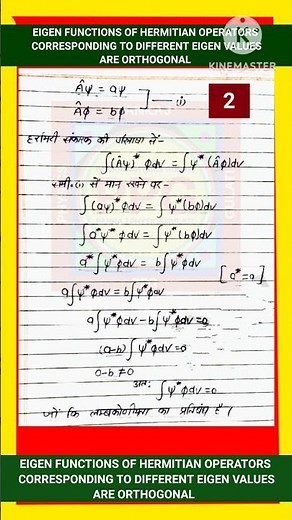 EIGEN FUNCTIONS OF HERMITIAN OPERATORS
CORRESPONDING TO DIFFERENT EIGEN VALUES
ARE ORTHOGONAL
KINEMASTER
2
Âψ = aψ
Âϕ = bϕ ] —(i)
हरमिटी संकारक की परिभाषा से-
∫(Âψ)* ϕdv = ∫ψ* (Âϕ)dv
समी.(i) से मान रखने पर-
∫(aψ)* ϕdv = ∫ψ* (bϕ)dv
∫a*ψ* ϕdv = ∫ψ* (bϕ)dv
a*∫ψ* ϕdv = b∫ψ* ϕdv
[a* = a]
a∫ψ* ϕdv = b∫ψ* ϕdv
a∫ψ* ϕdv - b∫ψ* ϕdv = 0
(a-b)∫ψ* ϕdv = 0
a-b ≠ 0
अतः ∫ψ* ϕdv = 0
जो कि लम्बकोणीयता का प्रतिबंध है।
EIGEN FUNCTIONS OF HERMITIAN OPERATORS
CORRESPONDING TO DIFFERENT EIGEN VALUES
ARE ORTHOGONAL